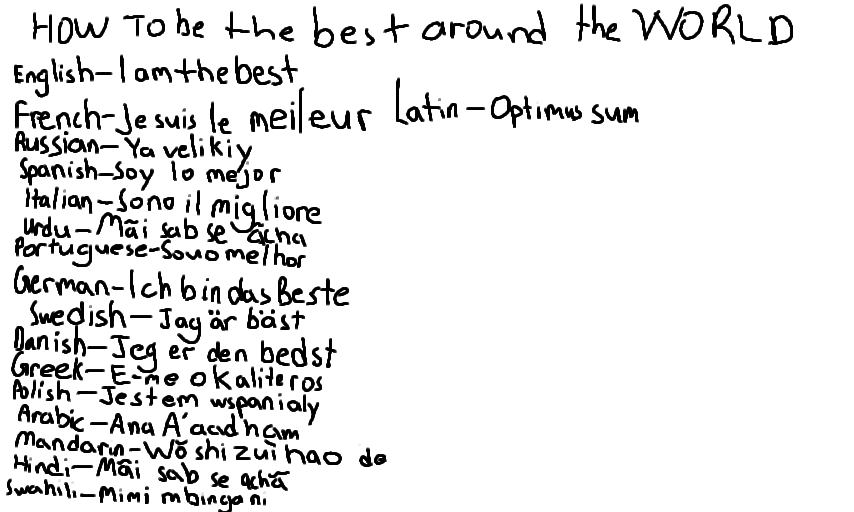 HOW TO be the best around the WORLD
English-I am the best
French-Je suis le meileur Latin-Optimus sum
Russian-Ya velikiy
Spanish-Soy lo mejor
Italian-Sono il migliore
Urdu-Mãi sab se ãcha
Portuguese-Sou o melhor
German-Ich bin das Beste
Swedish-Jag är bäst
Danish-Jeg er den bedst
Greek-E-me o Kaliteros
Polish-Jestem wspanialy
Arabic-Ana A'aadham
Mandarin-Wǒ shi zui hao de
Hindi-Mãi sab se achã
Swahili-Mimi mbingo ni